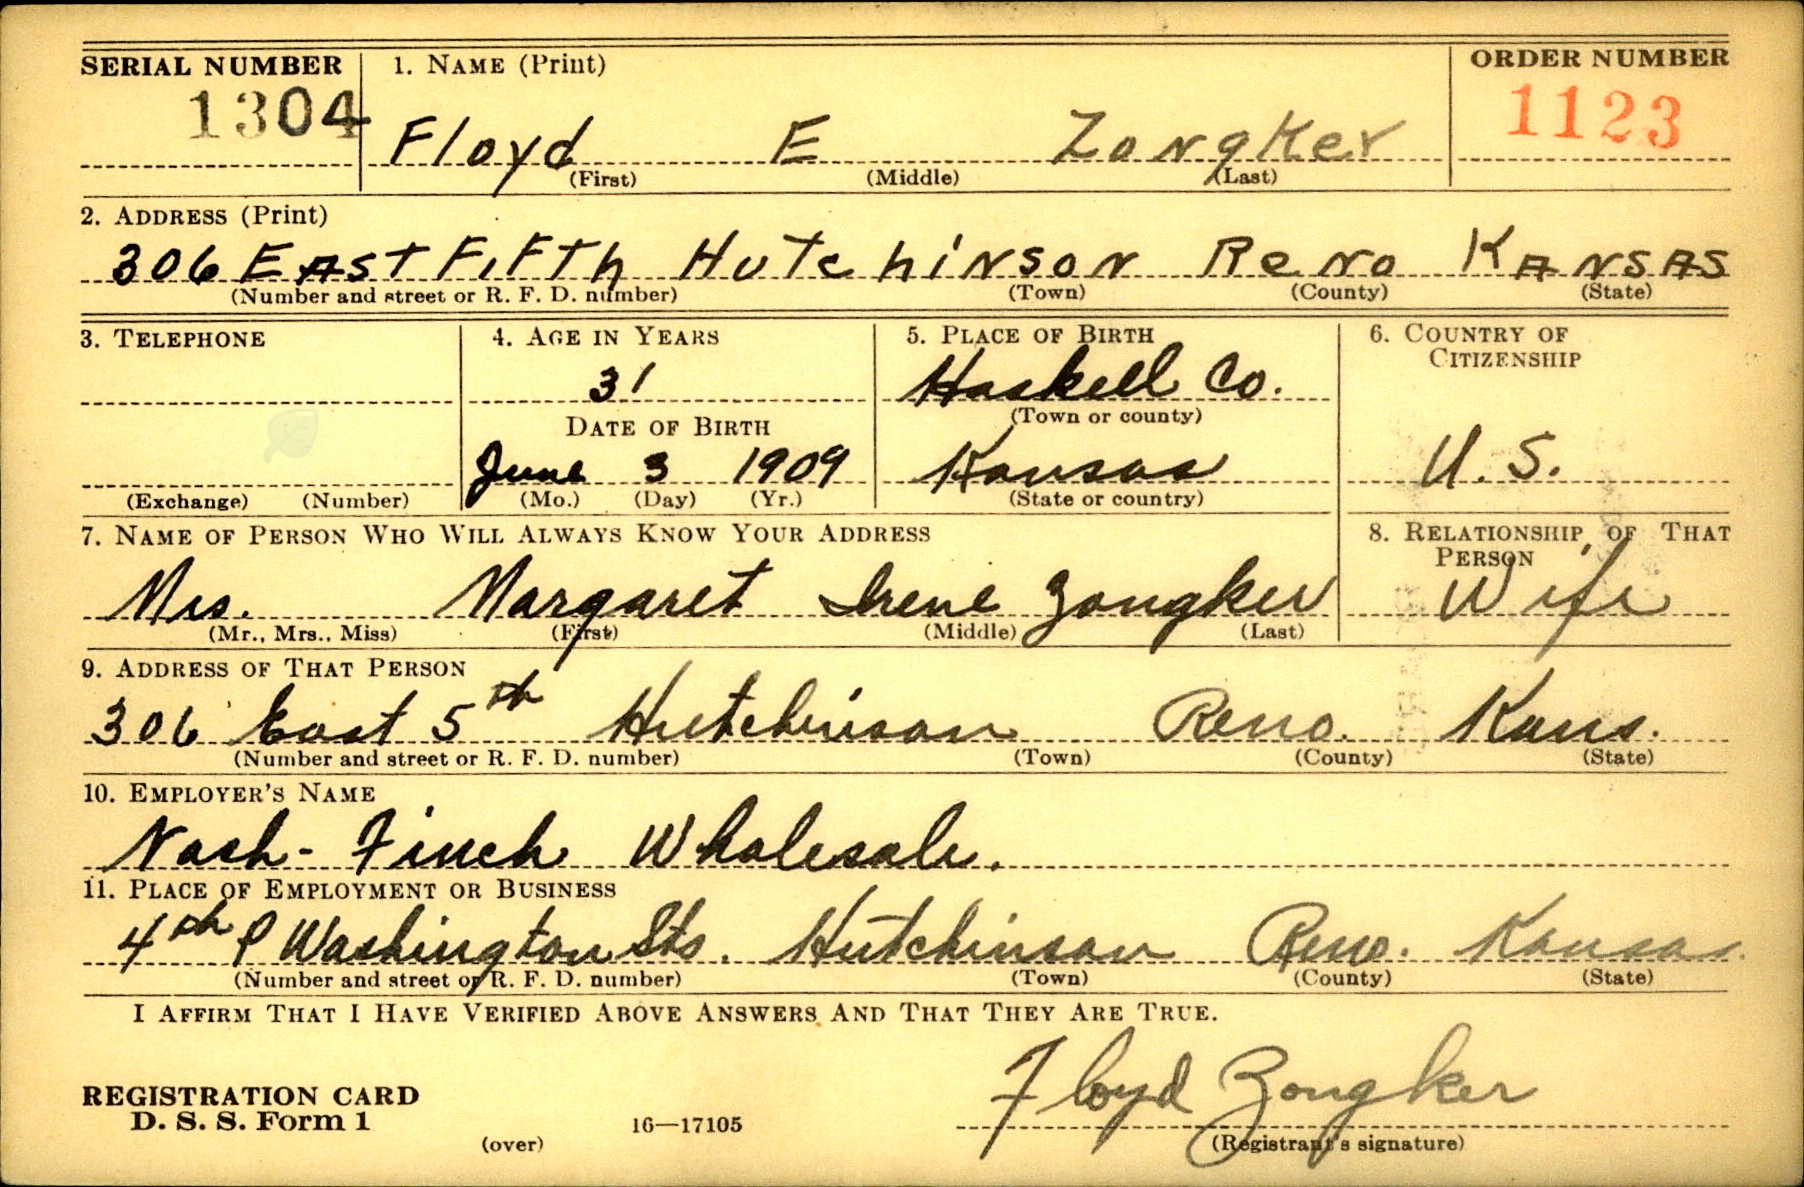 SERIAL NUMBER 1. NAME (Print) ORDER NUMBER
1304 Floyd E Zongker 1123
(First) (Middle) (Last)
2. ADDRESS (Print)
306 EAST FIFTh HUTchiNSON ReNo KANSAS
(Number and street or R. F. D. number) (Town) (County) (State)
3. TELEPHONE 4. AGE IN YEARS 5. PLACE OF BIRTH 6. COUNTRY OF CITIZENSHIP
31 Haskell Co.
(Town or county)
DATE OF BIRTH
June 3 1909 Kansas U.S.
(Exchange) (Number) (Mo.) (Day) (Yr.) (State or country)
7. NAME OF PERSON WHO WILL ALWAYS KNOW YOUR ADDRESS 8. RELATIONSHIP OF THAT PERSON
Mrs. Margaret Irene Zongker Wife
(Mr., Mrs., Miss) (First) (Middle) (Last)
9. ADDRESS OF THAT PERSON
306 East 5th Hutchinson Reno. Kans.
(Number and street or R. F. D. number) (Town) (County) (State)
10. EMPLOYER'S NAME
Nash-Finch Wholesale.
11. PLACE OF EMPLOYMENT OR BUSINESS
4th & Washington Sts. Hutchinson Reno. Kansas.
(Number and street or R. F. D. number) (Town) (County) (State)
I AFFIRM THAT I HAVE VERIFIED ABOVE ANSWERS AND THAT THEY ARE TRUE.
Floyd Zongker
REGISTRATION CARD
D. S. S. Form 1 (over) 16—17105 (Registrant's signature)